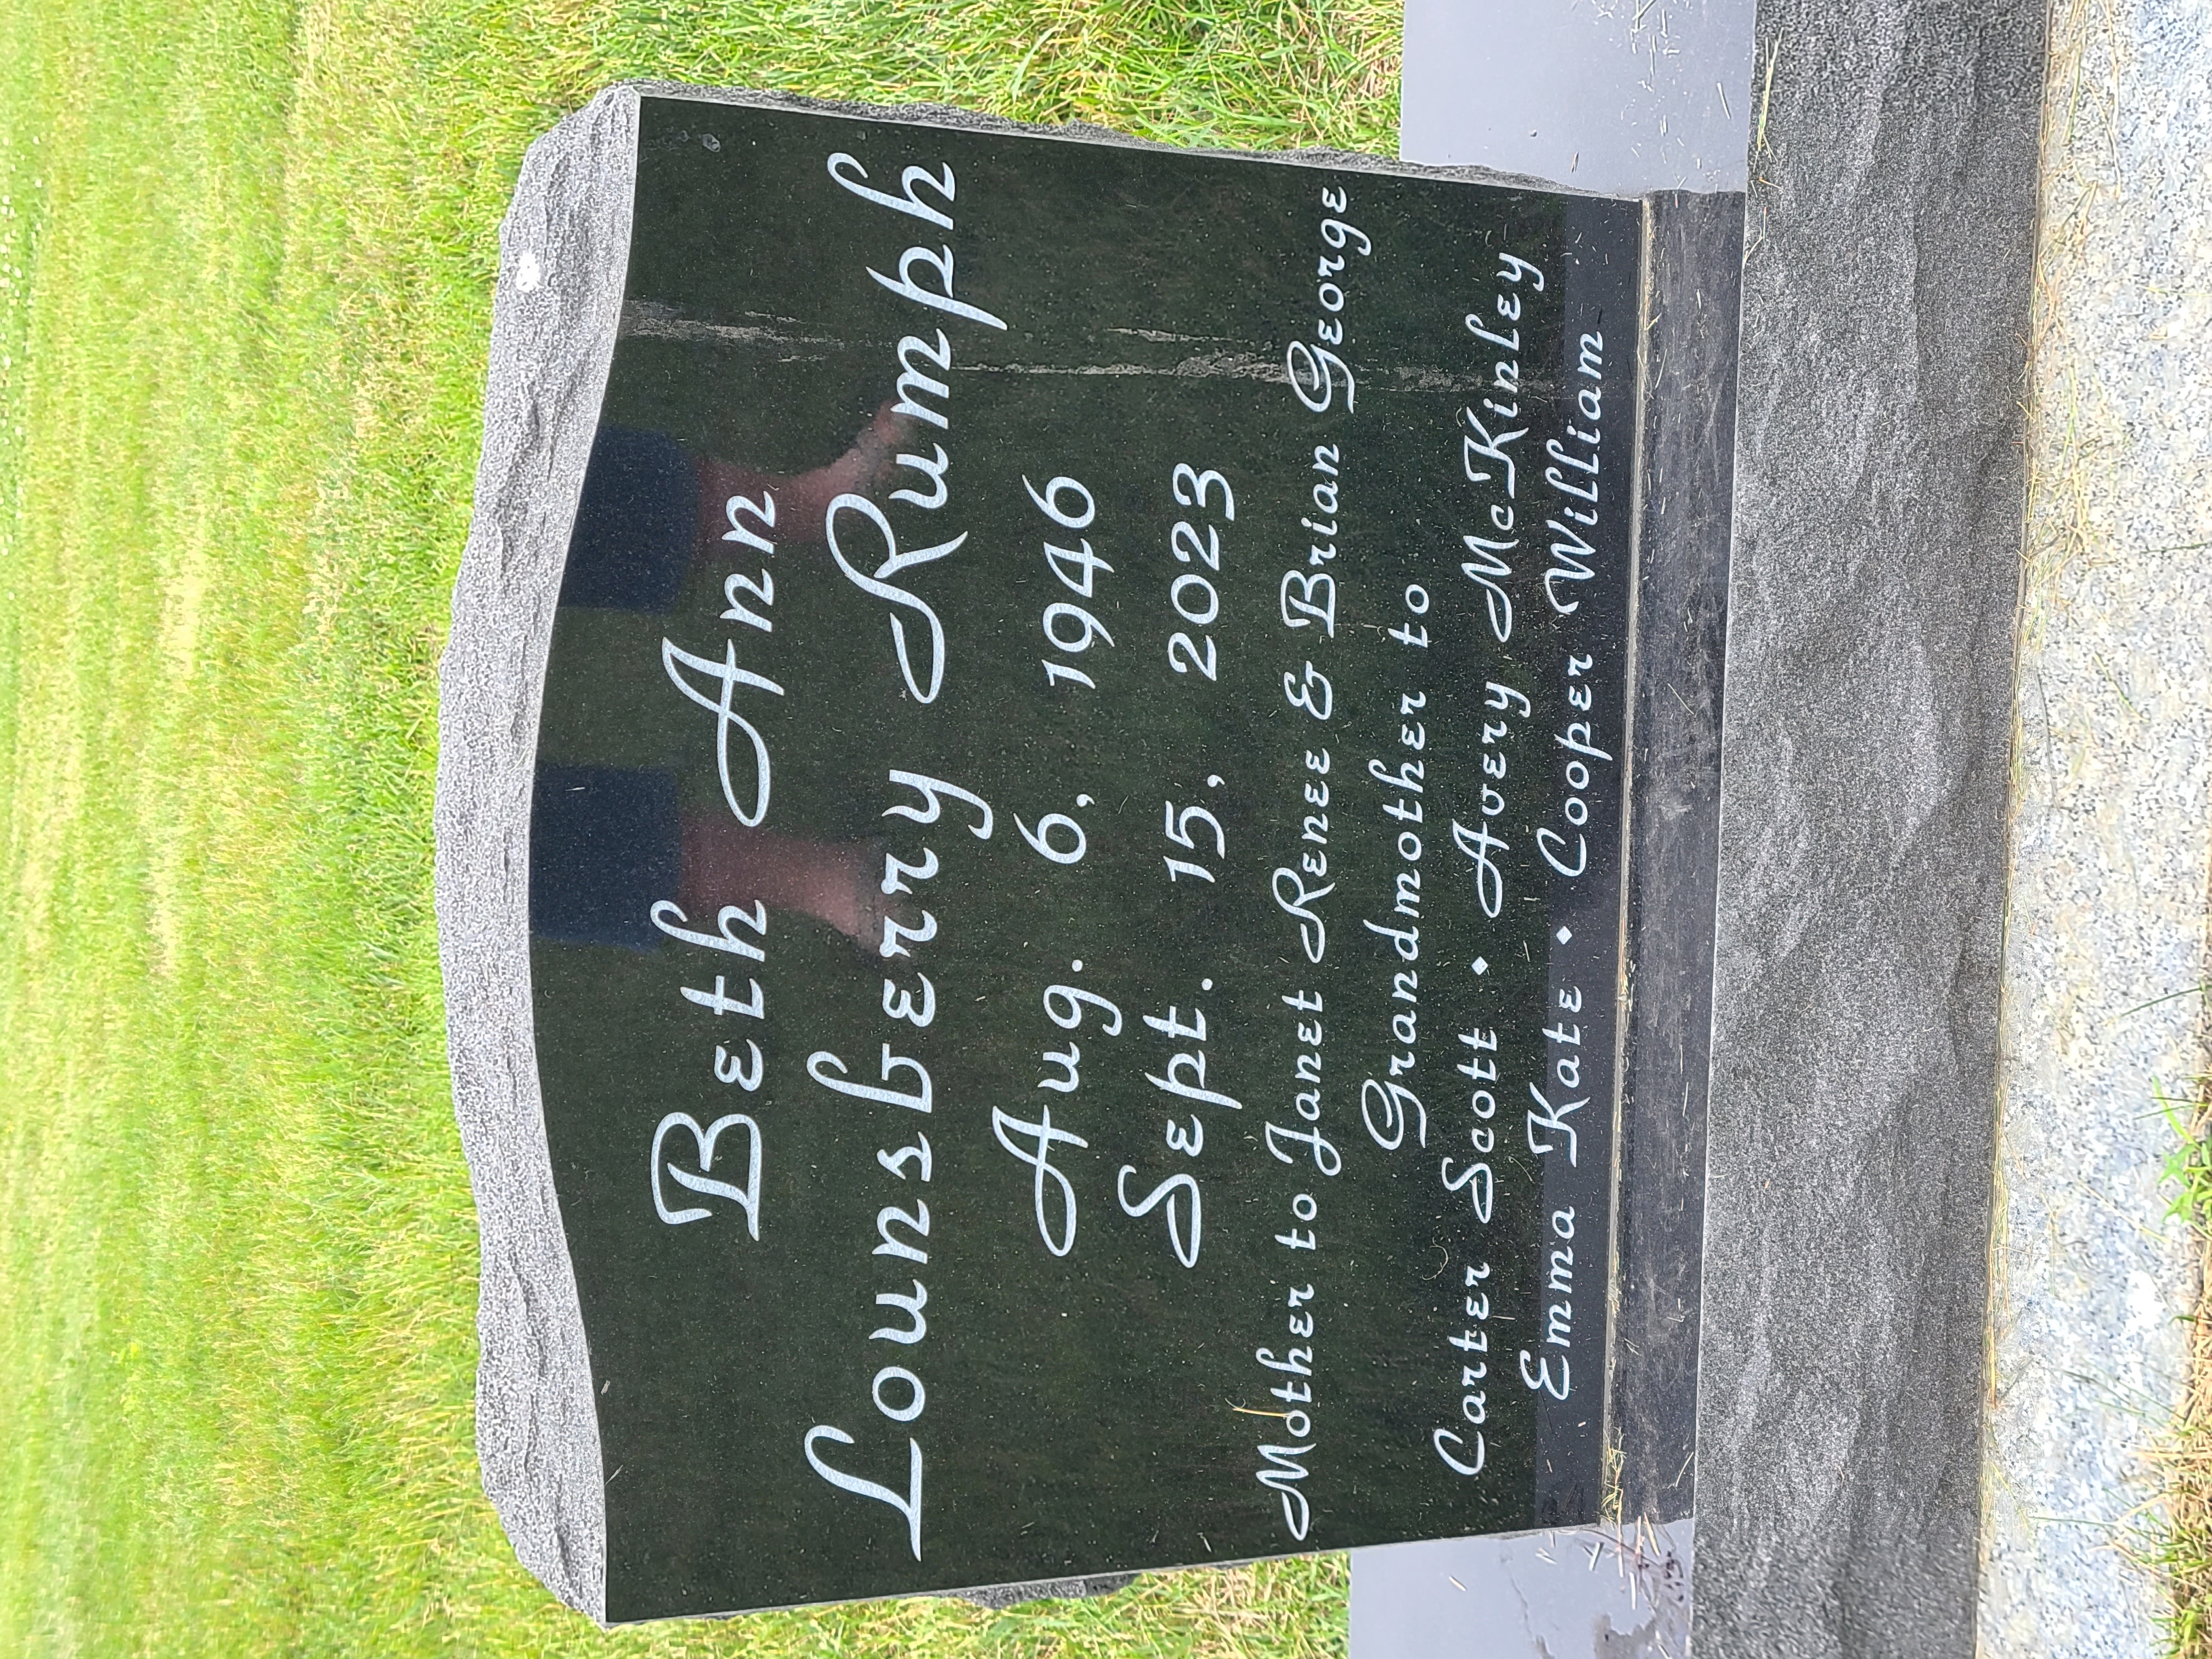 Beth Ann
Lounsberry Rumph
Aug. 6, 1946
Sept. 15, 2023
Mother to Janet Renee & Brian George
Grandmother to
Carter Scott ⬥ Avery McKinley
Emma Kate ⬥ Cooper William